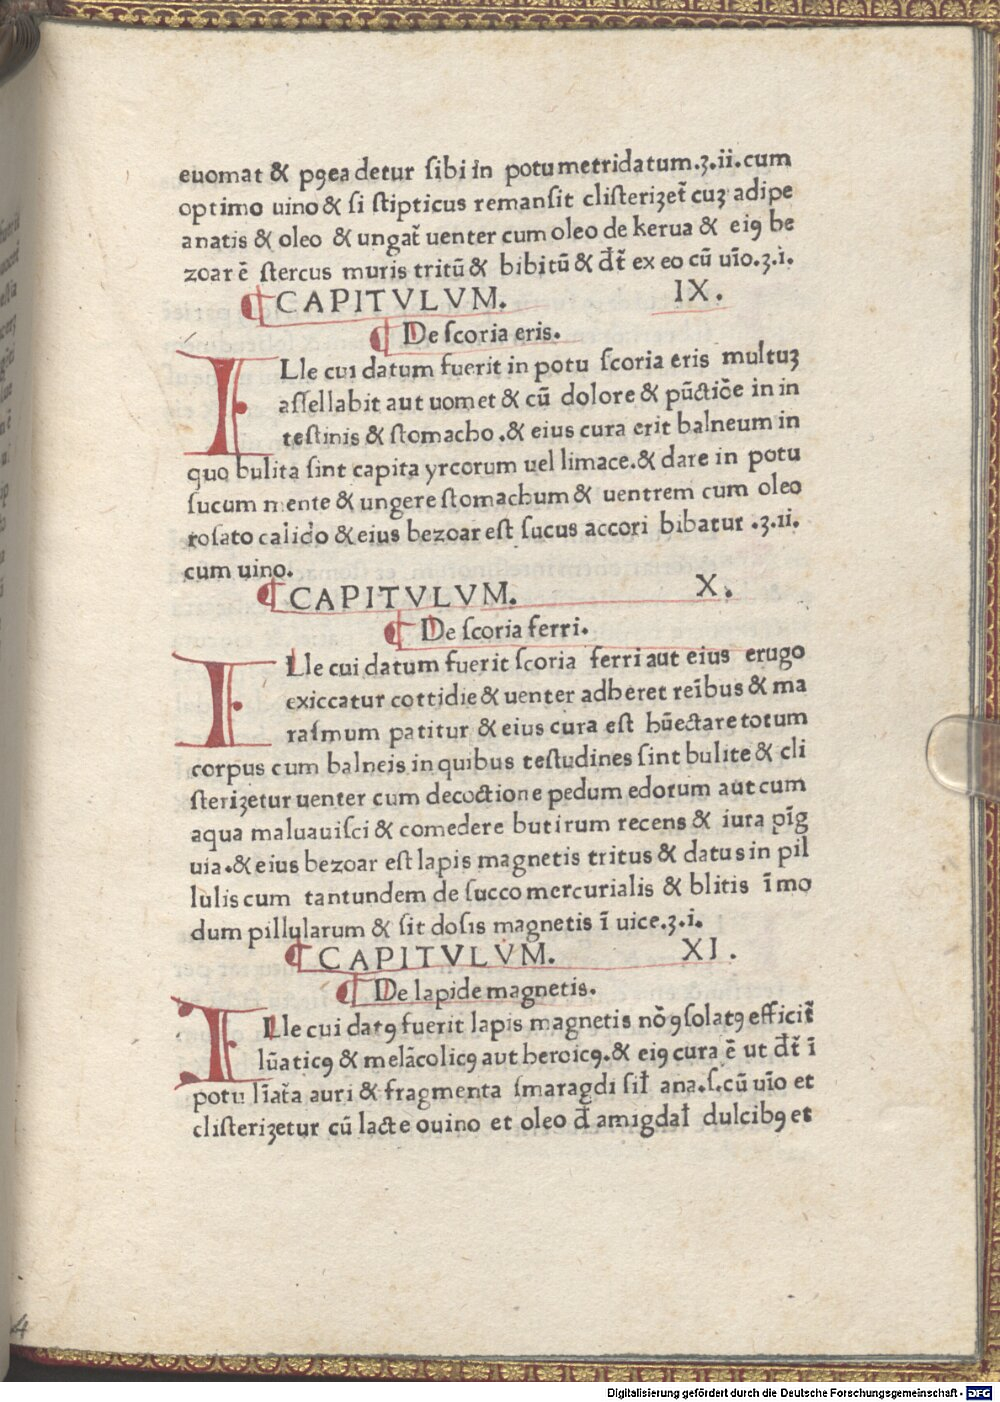 euomat & pꝯea detur ſibi in potu metridatum.ʒ.ii.cum
optimo uino & ſi ſtipticus remanſit cliſteriꝫet̄ cuꝫ adipe
anatis & oleo & ungat̄ uenter cum oleo de kerua & eiꝯ be
zoar ē ſtercus muris tritū & bibitū & d̄t̄ ex eo cū uīo.ʒ.i.
¶ CAPITVLVM. IX.
¶ De ſcoria eris.
ILle cui datum fuerit in potu ſcoria eris multuꝫ
aſſellabit aut uomet & cū dolore & pūctiōe in in
teſtinis & ſtomacho.& eius cura erit balneum in
quo bulita ſint capita yrcorum uel limace.& dare in potu
ſucum mente & ungere ſtomachum & uentrem cum oleo
roſato calido & eius bezoar eſt ſucus accori bibatur .ʒ.ii.
cum uino.
¶ CAPITVLVM. X.
¶ De ſcoria ferri.
ILle cui datum fuerit ſcoria ferri aut eius erugo
exiccatur cottidie & uenter adheret reībus & ma
raſmum patitur & eius cura eſt hūectare totum
corpus cum balneis in quibus teſtudines ſint bulite & cli
ſteriꝫetur uenter cum decoctione pedum edorum aut cum
aqua maluauiſci & comedere butirum recens & iura pīg
uia.& eius bezoar eſt lapis magnetis tritus & datus in pil
lulis cum tantundem de ſucco mercurialis & blitis ī mo
dum pillularum & ſit doſis magnetis ī uice.ʒ.i.
¶ CAPITVLVM. XI.
¶ De lapide magnetis.
ILle cui datꝯ fuerit lapis magnetis nō ꝯſolatꝯ efficit̄
lūaticꝯ & melācolicꝯ aut heroicꝯ.& eiꝯ cura ē ut d̄t̄ ī
potu līat̄a auri & fragmenta ſmaragdi ſil̄ ana.ſ.cū uīo et
cliſteriꝫetur cū lacte ouino et oleo d̄ amigdal̄ dulcibꝯ et
4
Digitalisierung gefördert durch die Deutsche Forschungsgemeinschaft - DFG